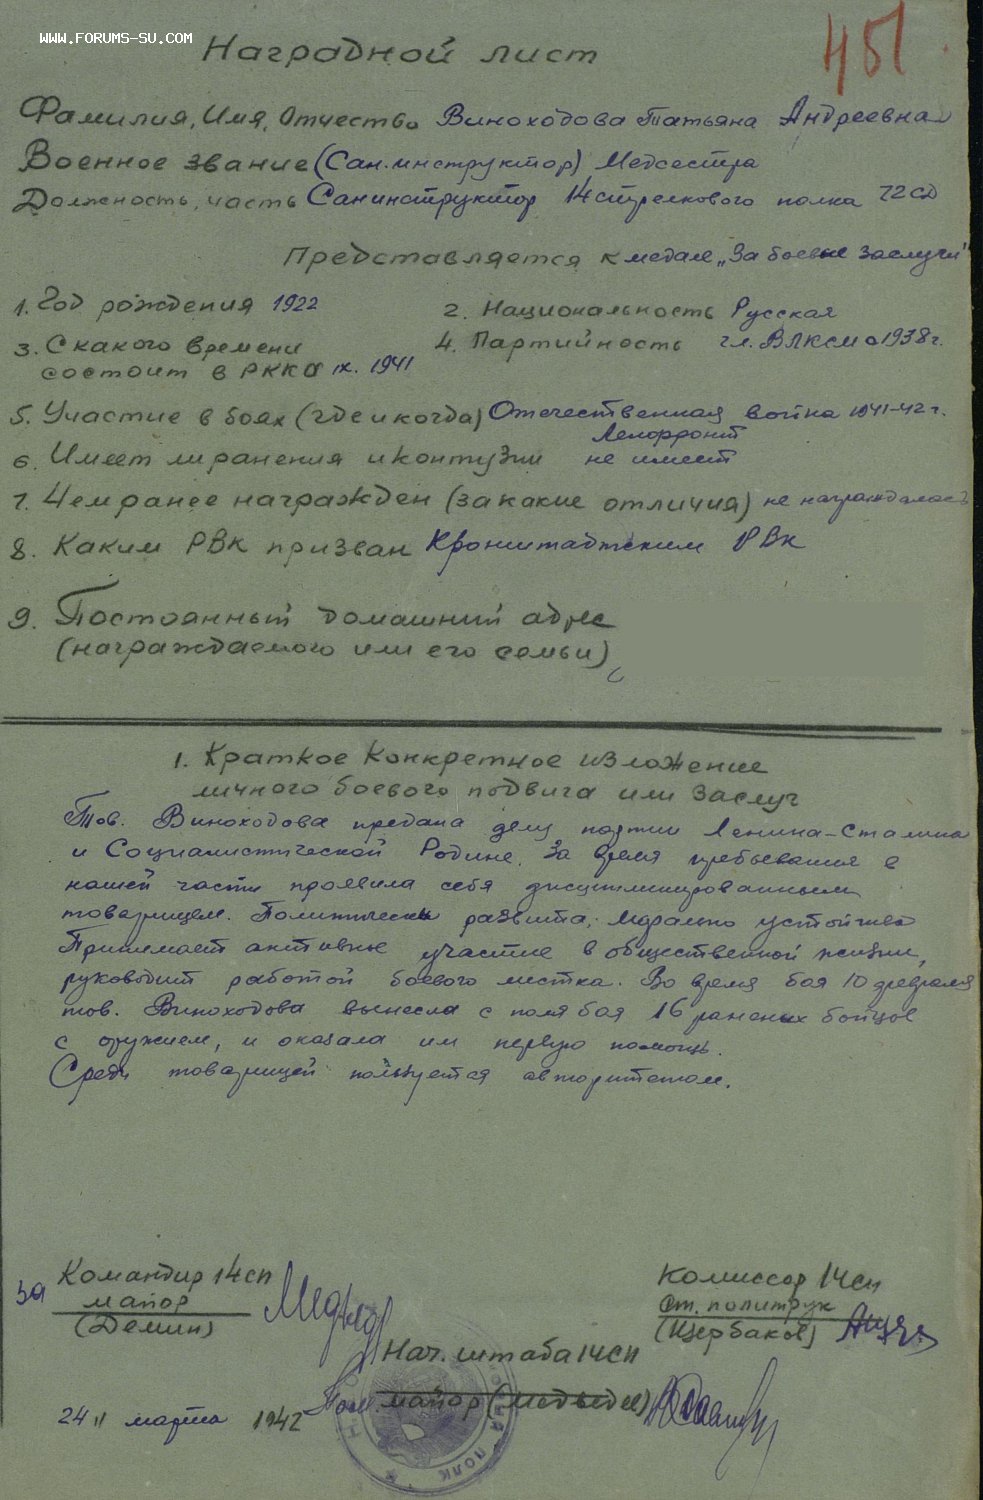 WWW.FORUMS-SU.COM
451
Наградной лист
Фамилия, Имя, Отчество Виноходова Татьяна Андреевна
Военное звание (Сан.инструктор) Медсестра
Должность, часть Санинструктор 14 стрелкового полка 72 сд
Представляется к медале „За боевые заслуги"
1. Год рождения 1922
2. Национальность Русская
3. С какого времени
состоит в РККА IX. 1941
4. Партийность чл. ВЛКСМ с 1938 г.
5. Участие в боях (где и когда) Отечественная война 1941-42 г.
Ленфронт
6. Имеет ли ранения и контузии не имеет
7. Чем ранее награжден (за какие отличия) не награждалась
8. Каким РВК призван Кронштадтским РВК
9. Постоянный домашний адрес
(награждаемого или его семьи)
1. Краткое конкретное изложение
личного боевого подвига или заслуг
Тов. Виноходова предана делу партии Ленина-Сталина
и Социалистической Родине. За время пребывания в
нашей части проявила себя дисциплинированным
товарищем. Политически развита, морально устойчива
Принимает активное участие в общественной жизни,
руководит работой боевого листка. Во время боя 10 февраля
тов. Виноходова вынесла с поля боя 16 раненых бойцов
с оружием, и оказала им первую помощь.
Среди товарищей пользуется авторитетом.
За Командир 14 сп
майор
(Демин)
Комиссар 14 сп
Ст. политрук
(Щербаков)
Нач. штаба 14 сп
Пом. майор (Медведев)
24 " марта 1942
ПОЛК